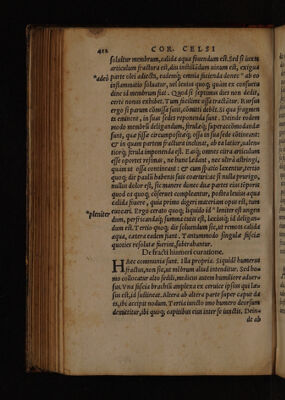 412 COR. CELSI
soluitur membrum, calida aqua fouendum est. Sed si iuxta
articulum fractura est, diu instillādum uinum est, exigua
*adeo parte olei adiecta, eadémq; omnia facienda donec * ab eo
inflammatio soluatur, uel leuius quoq; quàm ex consuetu
dine id membrum fiat. Quòd si septimus dies non dedit,
certè nonus exhibet. Tum facilimè ossa tractātur. Rursus
ergo si parum cōmissa sunt, cōmitti debēt. Si qua fragmen
ta eminent, in suas sedes reponenda sunt. Deinde eodem
modo membrū deligandum, ferulǽq; super accōmodandæ
sunt, quæ fissæ circumpositǽq; ossa in sua sede cōtineant:
& in quam partem fractura inclinat, ab ea latior, ualen-
tiorq́; ferula imponenda est. Eásq; omnes circa articulum
esse oportet resimas, ne hunc lædant, nec ultrà astringi,
quàm ut ossa contineant: & cum spatio laxentur, tertio
quoq; die paulùm habenis suis coarctari: ac si nulla prurigo,
nullus dolor est, sic manere donec duæ partes eius tēporis
quod os quodq; cōferbuit compleantur, postea leuius aqua
calida fouere, quia primo digeri materiam opus est, tum
euocari. Ergo cerato quoq; liquido id * leniter est ungen
*pleniter dum, perfricandáq; summa cutis est, laxiúsq; id deligan-
dum est. Tertio quoq; die soluendum sic, ut remota calida
aqua, cætera eadem fiant. Tantummodo singulæ fasciæ
quoties resolutæ fuerint, subtrahantur.
De fracti humeri curatione.
Hæc communia sunt. Illa propria. Siquidē humerus
fractus, non sic, ut mēbrum aliud intenditur. Sed homo
collocatur alto sedili, medicus autem humiliore aduer-
sus. Vna fascia brachiū amplexa ex ceruice ipsius qui læ-
sus est, id sustineat. Altera ab altera parte super caput da
ta, ibi accipit nodum. Tertia iuncto imo humero deorsum
demittitur, ibi quoq; capitibus eius inter se iunctis. Dein-
de ab